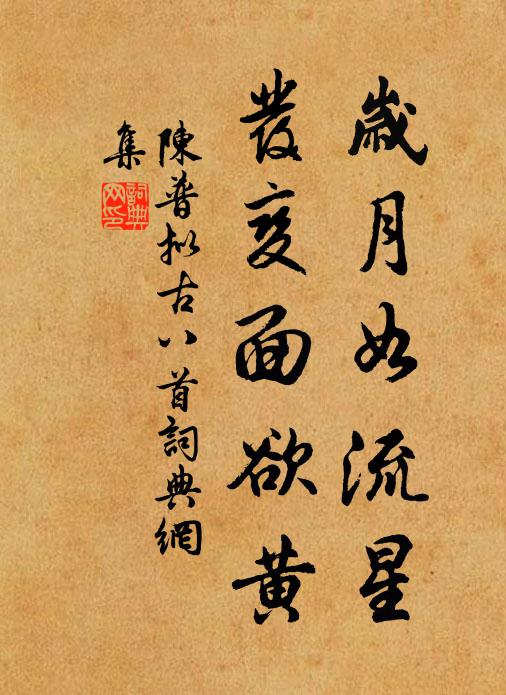 歲月如流星
發变面欲黄
陳普拟古八首詞典網
集
詞典
网印